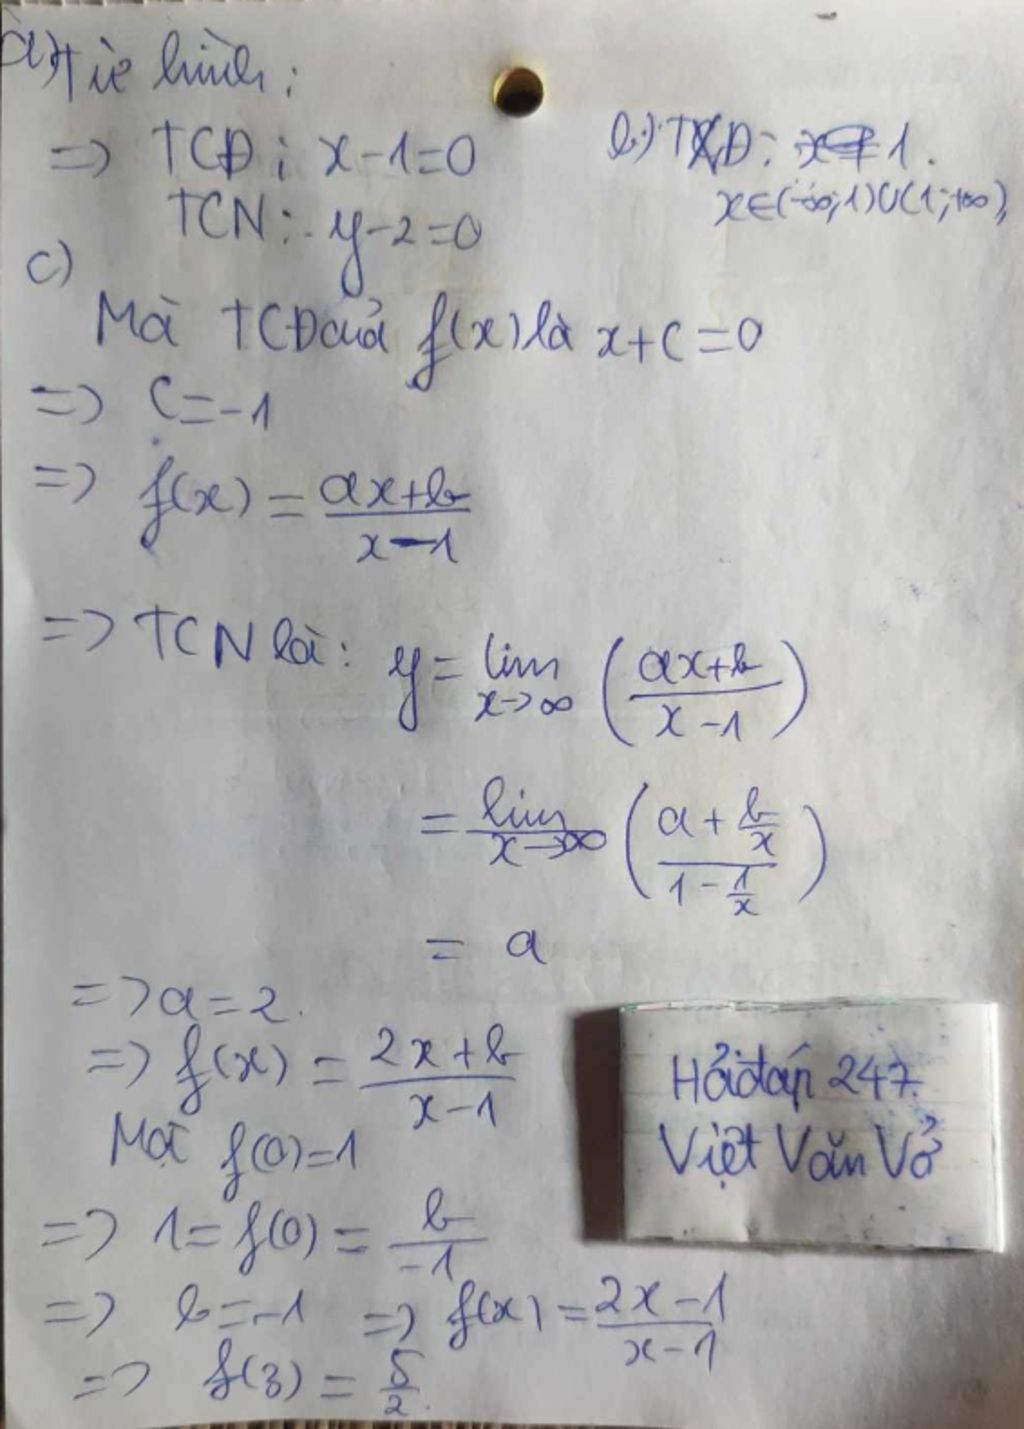 a) Từ hình:
=> TCĐ: x-1=0
TCN: y-2=0
b) TXĐ: x≠1.
x∈(-∞;1)∪(1;+∞),
c)
Mà TCĐ của f(x) là x+c=0
=> c=-1
=> f(x) = \frac{ax+b}{x-1}
=> TCN là: y = \lim_{x→∞} (\frac{ax+b}{x-1})
= \lim_{x→∞} (\frac{a+\frac{b}{x}}{1-\frac{1}{x}})
= a
=> a=2.
=> f(x) = \frac{2x+b}{x-1}
Mà f(0)=1
=> 1=f(0) = \frac{b}{-1}
=> b=-1 => f(x) = \frac{2x-1}{x-1}
=> f(3) = \frac{5}{2}.
Hỏi đáp 247.
Việt Văn Vở